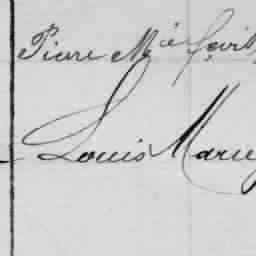 Pierre Mie
Louis Marie